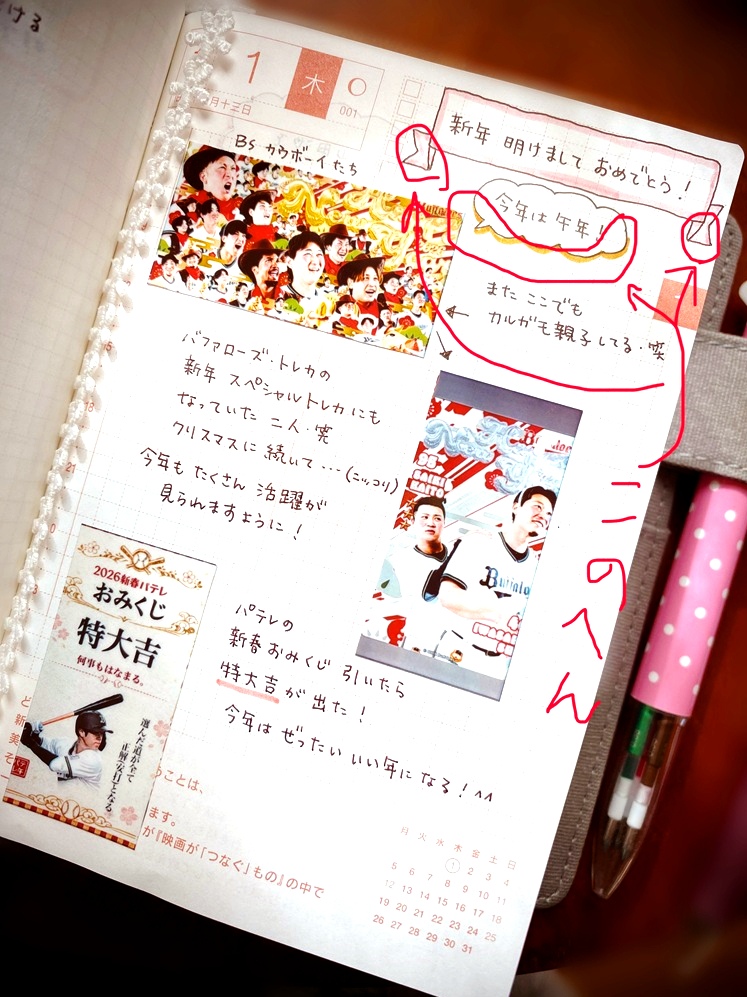 ける
1
木
月十三日
001
新年 明けまして おめでとう！
今年は午年！
Bs カウボーイたち
また ここでも
カルガモ親子してる・笑
バファローズ・トレカの
新年 スペシャルトレカにも
なっていた 二人・笑
クリスマスに 続いて・・・(ニッコリ)
今年も たくさん 活躍が
見られますように！
このへん
Buffaloes
2026新春パテレ
おみくじ
特大吉
何事もはなまる。
選んだ道が全て
正解(安打)となる。
パテレの
新春おみくじ 引いたら
特大吉が出た！
今年は ぜったい いい年になる！^^
ことは、
ます。
が『映画が「つなぐ」もの』の中で
月 火 水 木 金 土 日
1 2 3 4
5 6 7 8 9 10 11
12 13 14 15 16 17 18
19 20 21 22 23 24 25
26 27 28 29 30 31